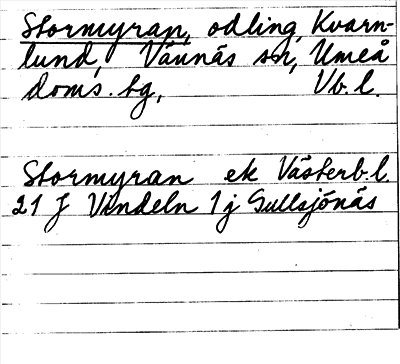 Stormyran, odling, Kvarn-
lund, Vännäs sn, Umeå
doms. bg, Vb. l.
Stormyran ek Västerb. l.
21 J Vindeln 1 j Gullsjönäs